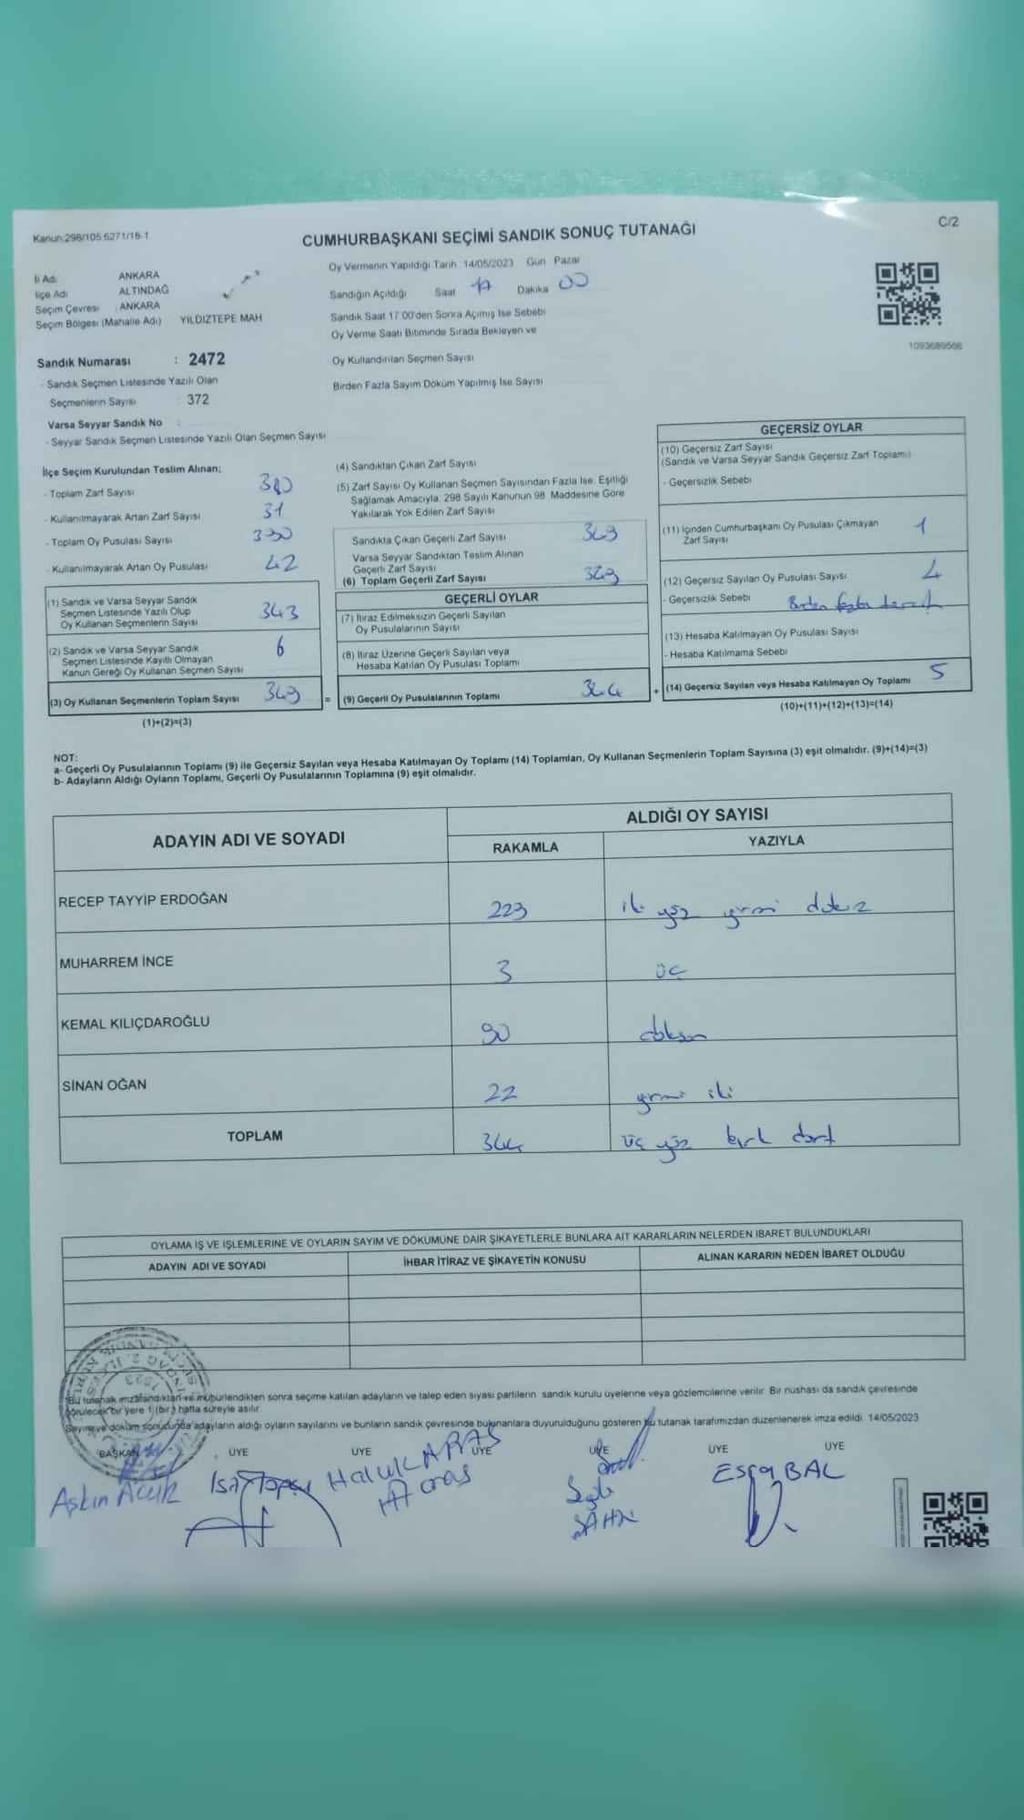 Kanun:298/105 6271/16-1
C/2
CUMHURBAŞKANI SEÇİMİ SANDIK SONUÇ TUTANAĞI
İl Adı ANKARA
İlçe Adı ALTINDAĞ
Seçim Çevresi : ANKARA
Seçim Bölgesi (Mahalle Adı) YILDIZTEPE MAH
Oy Vermenin Yapıldığı Tarih 14/05/2023 Gün Pazar
Sandığın Açıldığı Saat 17 Dakika 00
Sandık Saat 17 00'den Sonra Açılmış İse Sebebi
Oy Verme Saati Bitiminde Sırada Bekleyen ve
Oy Kullandırılan Seçmen Sayısı
Birden Fazla Sayım Döküm Yapılmış İse Sayısı
1093689566
Sandık Numarası : 2472
- Sandık Seçmen Listesinde Yazılı Olan
Seçmenlerin Sayısı 372
Varsa Seyyar Sandık No
- Seyyar Sandık Seçmen Listesinde Yazılı Olan Seçmen Sayısı
İlçe Seçim Kurulundan Teslim Alınan;
- Toplam Zarf Sayısı 380
- Kullanılmayarak Artan Zarf Sayısı 31
- Toplam Oy Pusulası Sayısı 390
- Kullanılmayarak Artan Oy Pusulası 42
(1) Sandık ve Varsa Seyyar Sandık
Seçmen Listesinde Yazılı Olup
Oy Kullanan Seçmenlerin Sayısı 343
(2) Sandık ve Varsa Seyyar Sandık
Seçmen Listesinde Kayıtlı Olmayan
Kanun Gereği Oy Kullanan Seçmen Sayısı 6
(3) Oy Kullanan Seçmenlerin Toplam Sayısı 349 =
(1)+(2)=(3)
(4) Sandıktan Çıkan Zarf Sayısı
(5) Zarf Sayısı Oy Kullanan Seçmen Sayısından Fazla İse, Eşitliği
Sağlamak Amacıyla, 298 Sayılı Kanunun 98. Maddesine Göre
Yakılarak Yok Edilen Zarf Sayısı
Sandıkta Çıkan Geçerli Zarf Sayısı 349
Varsa Seyyar Sandıktan Teslim Alınan
Geçerli Zarf Sayısı
(6) Toplam Geçerli Zarf Sayısı 349
GEÇERLİ OYLAR
(7) İtiraz Edilmeksizin Geçerli Sayılan
Oy Pusulalarının Sayısı
(8) İtiraz Üzerine Geçerli Sayılan veya
Hesaba Katılan Oy Pusulası Toplamı
(9) Geçerli Oy Pusulalarının Toplamı 344 +
GEÇERSİZ OYLAR
(10) Geçersiz Zarf Sayısı
(Sandık ve Varsa Seyyar Sandık Geçersiz Zarf Toplamı)
- Geçersizlik Sebebi
(11) İçinden Cumhurbaşkanı Oy Pusulası Çıkmayan
Zarf Sayısı 1
(12) Geçersiz Sayılan Oy Pusulası Sayısı 4
- Geçersizlik Sebebi Birden fazla tercih
(13) Hesaba Katılmayan Oy Pusulası Sayısı
- Hesaba Katılmama Sebebi
(14) Geçersiz Sayılan veya Hesaba Katılmayan Oy Toplamı 5
(10)+(11)+(12)+(13)=(14)
NOT:
a- Geçerli Oy Pusulalarının Toplamı (9) ile Geçersiz Sayılan veya Hesaba Katılmayan Oy Toplamı (14) Toplamları, Oy Kullanan Seçmenlerin Toplam Sayısına (3) eşit olmalıdır. (9)+(14)=(3)
b- Adayların Aldığı Oyların Toplamı, Geçerli Oy Pusulalarının Toplamına (9) eşit olmalıdır.
ADAYIN ADI VE SOYADI
ALDIĞI OY SAYISI
RAKAMLA YAZIYLA
RECEP TAYYİP ERDOĞAN 229 iki yüz yirmi dokuz
MUHARREM İNCE 3 üç
KEMAL KILIÇDAROĞLU 90 doksan
SİNAN OĞAN 22 yirmi iki
TOPLAM 344 üç yüz kırk dört
OYLAMA İŞ VE İŞLEMLERİNE VE OYLARIN SAYIM VE DÖKÜMÜNE DAİR ŞİKAYETLERLE BUNLARA AİT KARARLARIN NELERDEN İBARET BULUNDUKLARI
ADAYIN ADI VE SOYADI İHBAR İTİRAZ VE ŞİKAYETİN KONUSU ALINAN KARARIN NEDEN İBARET OLDUĞU
Bu tutanak imzalandıktan ve mühürlendikten sonra seçime katılan adayların ve talep eden siyasi partilerin sandık kurulu üyelerine veya gözlemcilerine verilir. Bir nüshası da sandık çevresinde
görülecek bir yere 1 (bir) hafta süreyle asılır.
Sayım ve döküm sonucunda adayların aldığı oyların sayılarını ve bunların sandık çevresinde bulunanlara duyurulduğunu gösteren bu tutanak tarafımızdan düzenlenerek imza edildi. 14/05/2023
BAŞKAN ÜYE ÜYE ÜYE ÜYE ÜYE ÜYE
Aşkın Açık Haluk ARAS Esra BAL
Aras
ŞAHİN